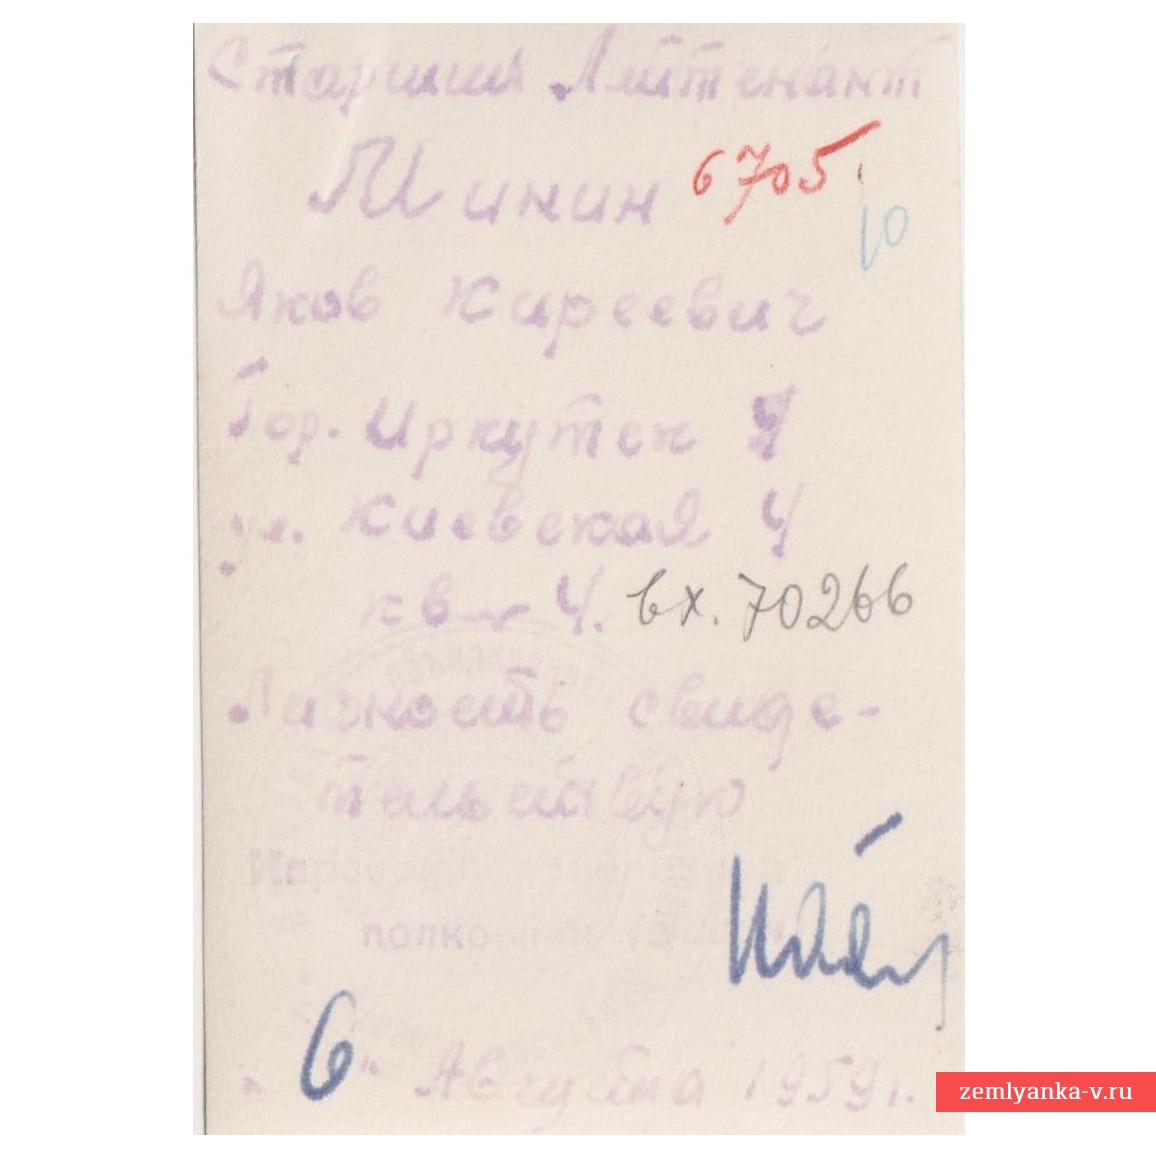 Старший Лейтенант
Минин 6705
10
Яков Киреевич
Гор. Иркутск 4
ул. Киевская 4
кв 4. вх. 70266
Личность свиде-
тельствую
полковник
"6" Августа 1959 г.
zemlyanka-v.ru